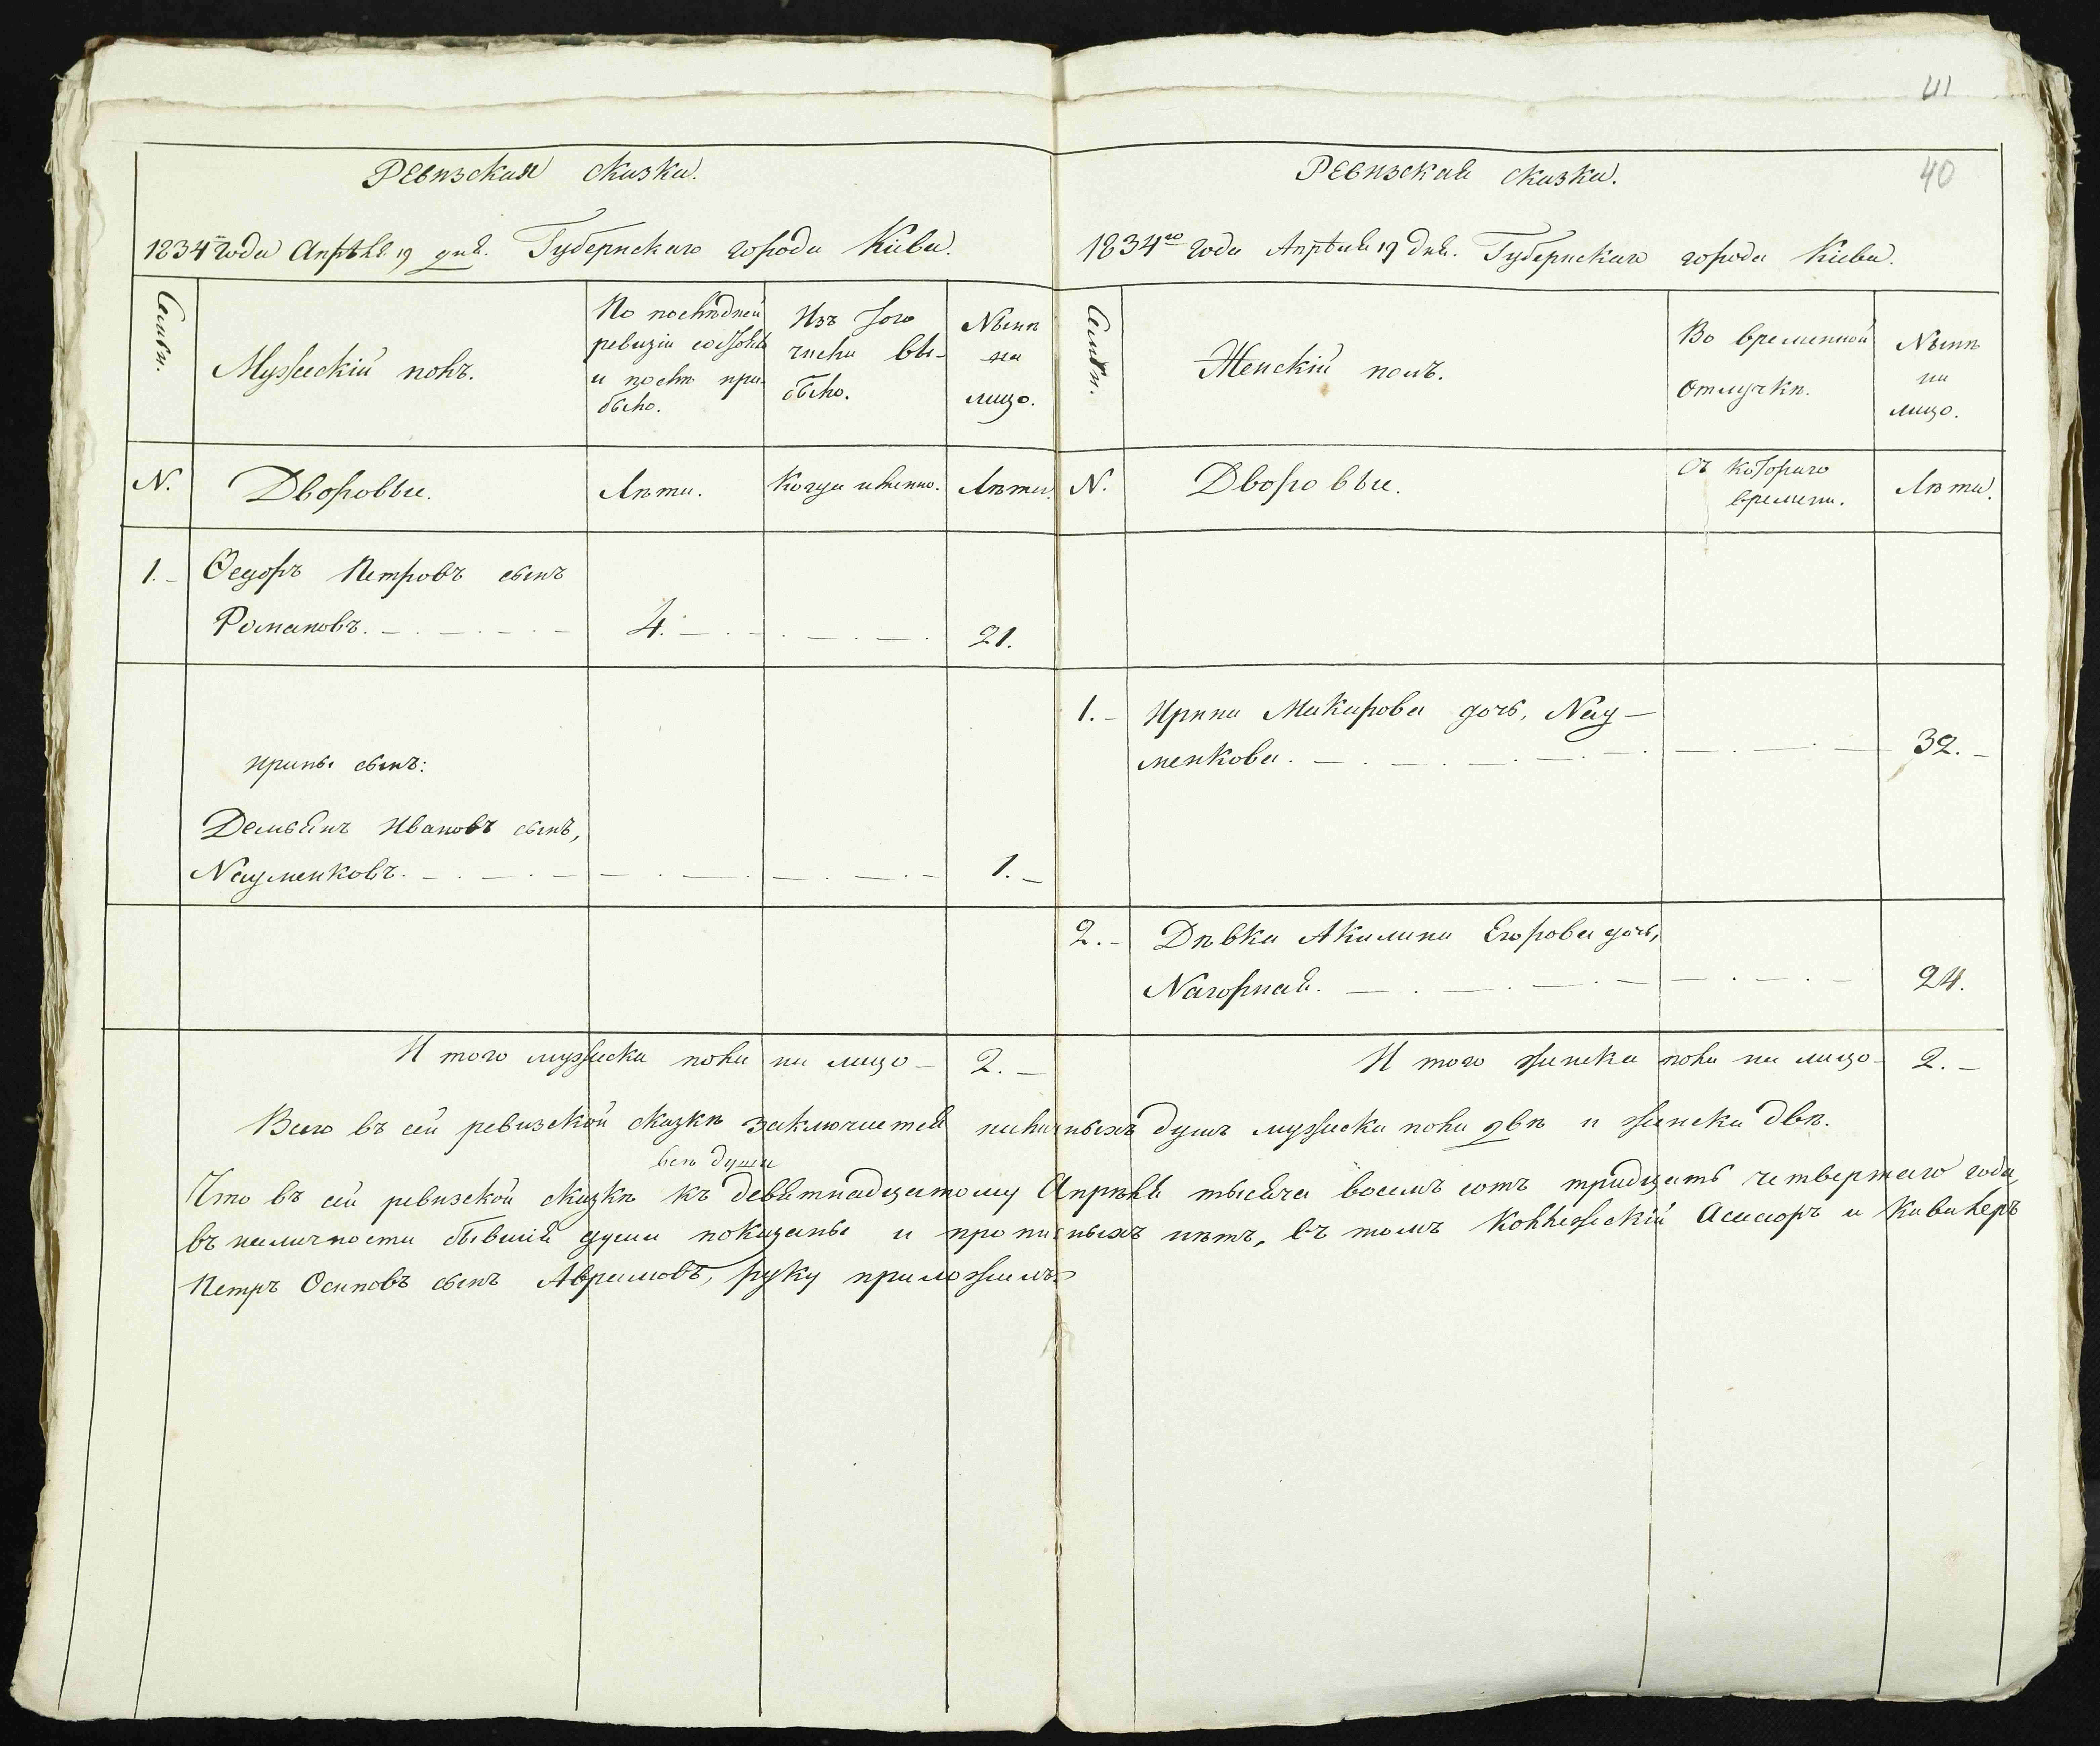 41
Ревизская сказка.
1834го года Апрѣля 19 дня. Губернскаго города Кіева.
Семьи.
Мужескій полъ.
По послѣдней
ревизіи состояло
и послѣ при-
было.
Изъ того
числа вы-
было.
Нынѣ
на
лицо.
N.
Дворовые.
Лѣта.
Когда именно.
Лѣта.
1.
Ѳедоръ Петровъ сынъ
Романовъ.
4.
21.
Ирины сынъ:
Демьянъ Ивановъ сынъ,
Науменковъ.
1.
И того мужеска пола на лицо
2.
Ревизская сказка.
40
1834го года Апрѣля 19 дня. Губернскаго города Кіева.
Семьи.
Женскій полъ.
Во временной
отлучкѣ.
Нынѣ
на
лицо.
N.
Дворовые.
Съ котораго
времени.
Лѣта.
1.
Ирина Макарова дочь, Нау-
менкова.
32.
2.
Дѣвка Акилина Егорова дочь,
Нагорная.
24.
И того женска пола на лицо
2.
Всего въ сей ревизской сказкѣ заключается наличныхъ душъ мужеска пола двѣ и женска двѣ.
всѣ души
Что въ сей ревизской сказкѣ къ девятнадцатому Апрѣля тысяча восемь сотъ тридцать четвертаго года,
въ наличности бывшія души показаны и прописныхъ нѣтъ, въ томъ Коллежскій Асесоръ и Кавалеръ
Петръ Осиповъ сынъ Аврамовъ, руку приложилъ